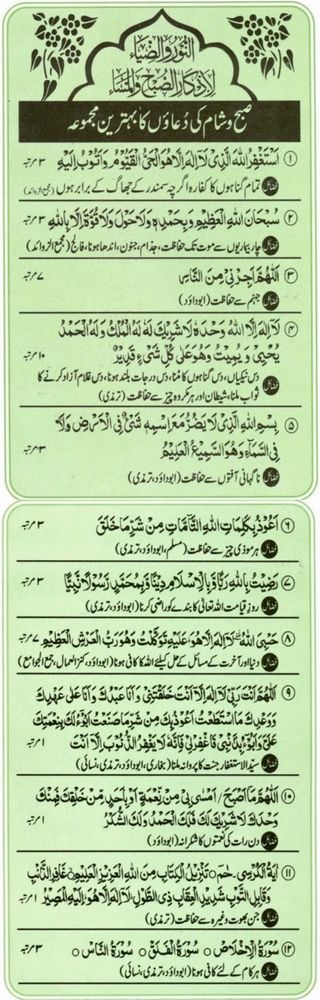 النور والضیاء
لاذکار الصبح والمساء
صبح و شام کی دعاؤں کا بہترین مجموعہ
۱ اَسْتَغْفِرُ اللهَ الَّذِیْ لَآ اِلٰهَ اِلَّا هُوَ الْحَیُّ الْقَیُّوْمُ وَاَتُوْبُ اِلَیْهِ ۳ مرتبہ
فضائل تمام گناہوں کا کفارہ اگرچہ سمندر کے جھاگ کے برابر ہوں (مجمع الزوائد)
۲ سُبْحَانَ اللهِ الْعَظِیْمِ وَبِحَمْدِهٖ وَلَاحَوْلَ وَلَاقُوَّةَ اِلَّا بِاللهِ ۳ مرتبہ
فضائل چار بیماریوں سے موت تک حفاظت، جذام، جنون، اندھا ہونا، فالج (مجمع الزوائد)
۳ اَللّٰهُمَّ اَجِرْنِیْ مِنَ النَّارِ ۷ مرتبہ
فضائل جہنم سے حفاظت (ابوداؤد)
۴ لَآ اِلٰهَ اِلَّا اللهُ وَحْدَهٗ لَا شَرِیْكَ لَهٗ لَهُ الْمُلْكُ وَلَهُ الْحَمْدُ
یُحْیِیْ وَیُمِیْتُ وَهُوَ عَلٰی كُلِّ شَیْءٍ قَدِیْرٌ ۱۰ مرتبہ
فضائل دس نیکیاں، دس گناہوں کا مٹنا، دس درجات بلند ہونا، دس غلام آزاد کرنے کا
ثواب ملنا، شیطان اور ہر مکروہ چیز سے حفاظت (ترمذی)
۵ بِسْمِ اللهِ الَّذِیْ لَا یَضُرُّ مَعَ اسْمِهٖ شَیْءٌ فِی الْاَرْضِ وَلَا
فِی السَّمَآءِ وَهُوَ السَّمِیْعُ الْعَلِیْمُ ۳ مرتبہ
فضائل ناگہانی آفتوں سے حفاظت (ابوداؤد، ترمذی)
۶ اَعُوْذُ بِكَلِمَاتِ اللهِ التَّآمَّاتِ مِنْ شَرِّ مَا خَلَقَ ۳ مرتبہ
فضائل ہر موذی چیز سے حفاظت (مسلم، ابوداؤد، ترمذی)
۷ رَضِیْتُ بِاللهِ رَبًّا وَّ بِالْاِسْلَامِ دِیْنًا وَّ بِمُحَمَّدٍ رَسُوْلًا نَبِیًّا ۳ مرتبہ
فضائل روز قیامت اللہ تعالیٰ کا بندے کو راضی کرنا (ابوداؤد، ترمذی)
۸ حَسْبِیَ اللهُ لَآ اِلٰهَ اِلَّا هُوَ عَلَیْهِ تَوَكَّلْتُ وَهُوَ رَبُّ الْعَرْشِ الْعَظِیْمِ ۷ مرتبہ
فضائل دنیا اور آخرت کے مسائل کے حل کیلئے اللہ کا کافی ہونا (ابوداؤد، کنز العمال، جمع الجوامع)
۹ اَللّٰهُمَّ اَنْتَ رَبِّیْ لَآ اِلٰهَ اِلَّا اَنْتَ خَلَقْتَنِیْ وَاَنَا عَبْدُكَ وَاَنَا عَلٰی عَهْدِكَ
وَوَعْدِكَ مَا اسْتَطَعْتُ اَعُوْذُ بِكَ مِنْ شَرِّ مَا صَنَعْتُ اَبُوْءُ لَكَ بِنِعْمَتِكَ
عَلَیَّ وَاَبُوْءُ بِذَنْبِیْ فَاغْفِرْلِیْ فَاِنَّهٗ لَا یَغْفِرُ الذُّنُوْبَ اِلَّا اَنْتَ ۱ مرتبہ
فضائل سید الاستغفار جنت کا پروانہ ملنا (بخاری، ابوداؤد، ترمذی، نسائی)
۱۰ اَللّٰهُمَّ مَا اَصْبَحَ / اَمْسٰی بِیْ مِنْ نِعْمَةٍ اَوْ بِاَحَدٍ مِّنْ خَلْقِكَ فَمِنْكَ
وَحْدَكَ لَا شَرِیْكَ لَكَ فَلَكَ الْحَمْدُ وَلَكَ الشُّكْرُ ۱ مرتبہ
فضائل دن رات کی نعمتوں کا شکرانہ (ابوداؤد)
۱۱ اٰیَةُ الْكُرْسِیْ، حٰمٓ تَنْزِیْلُ الْكِتَابِ مِنَ اللهِ الْعَزِیْزِ الْعَلِیْمِ غَافِرِ الذَّنْبِ
وَقَابِلِ التَّوْبِ شَدِیْدِ الْعِقَابِ ذِی الطَّوْلِ لَآ اِلٰهَ اِلَّا هُوَ اِلَیْهِ الْمَصِیْرُ ۱ مرتبہ
فضائل جن بھوت وغیرہ سے حفاظت (ترمذی)
۱۲ سُوْرَةُ الْاِخْلَاصِ ○ سُوْرَةُ الْفَلَقِ ○ سُوْرَةُ النَّاسِ ○ ۳ مرتبہ
فضائل ہر کام کے لئے کافی ہونا (ابوداؤد، ترمذی، نسائی)